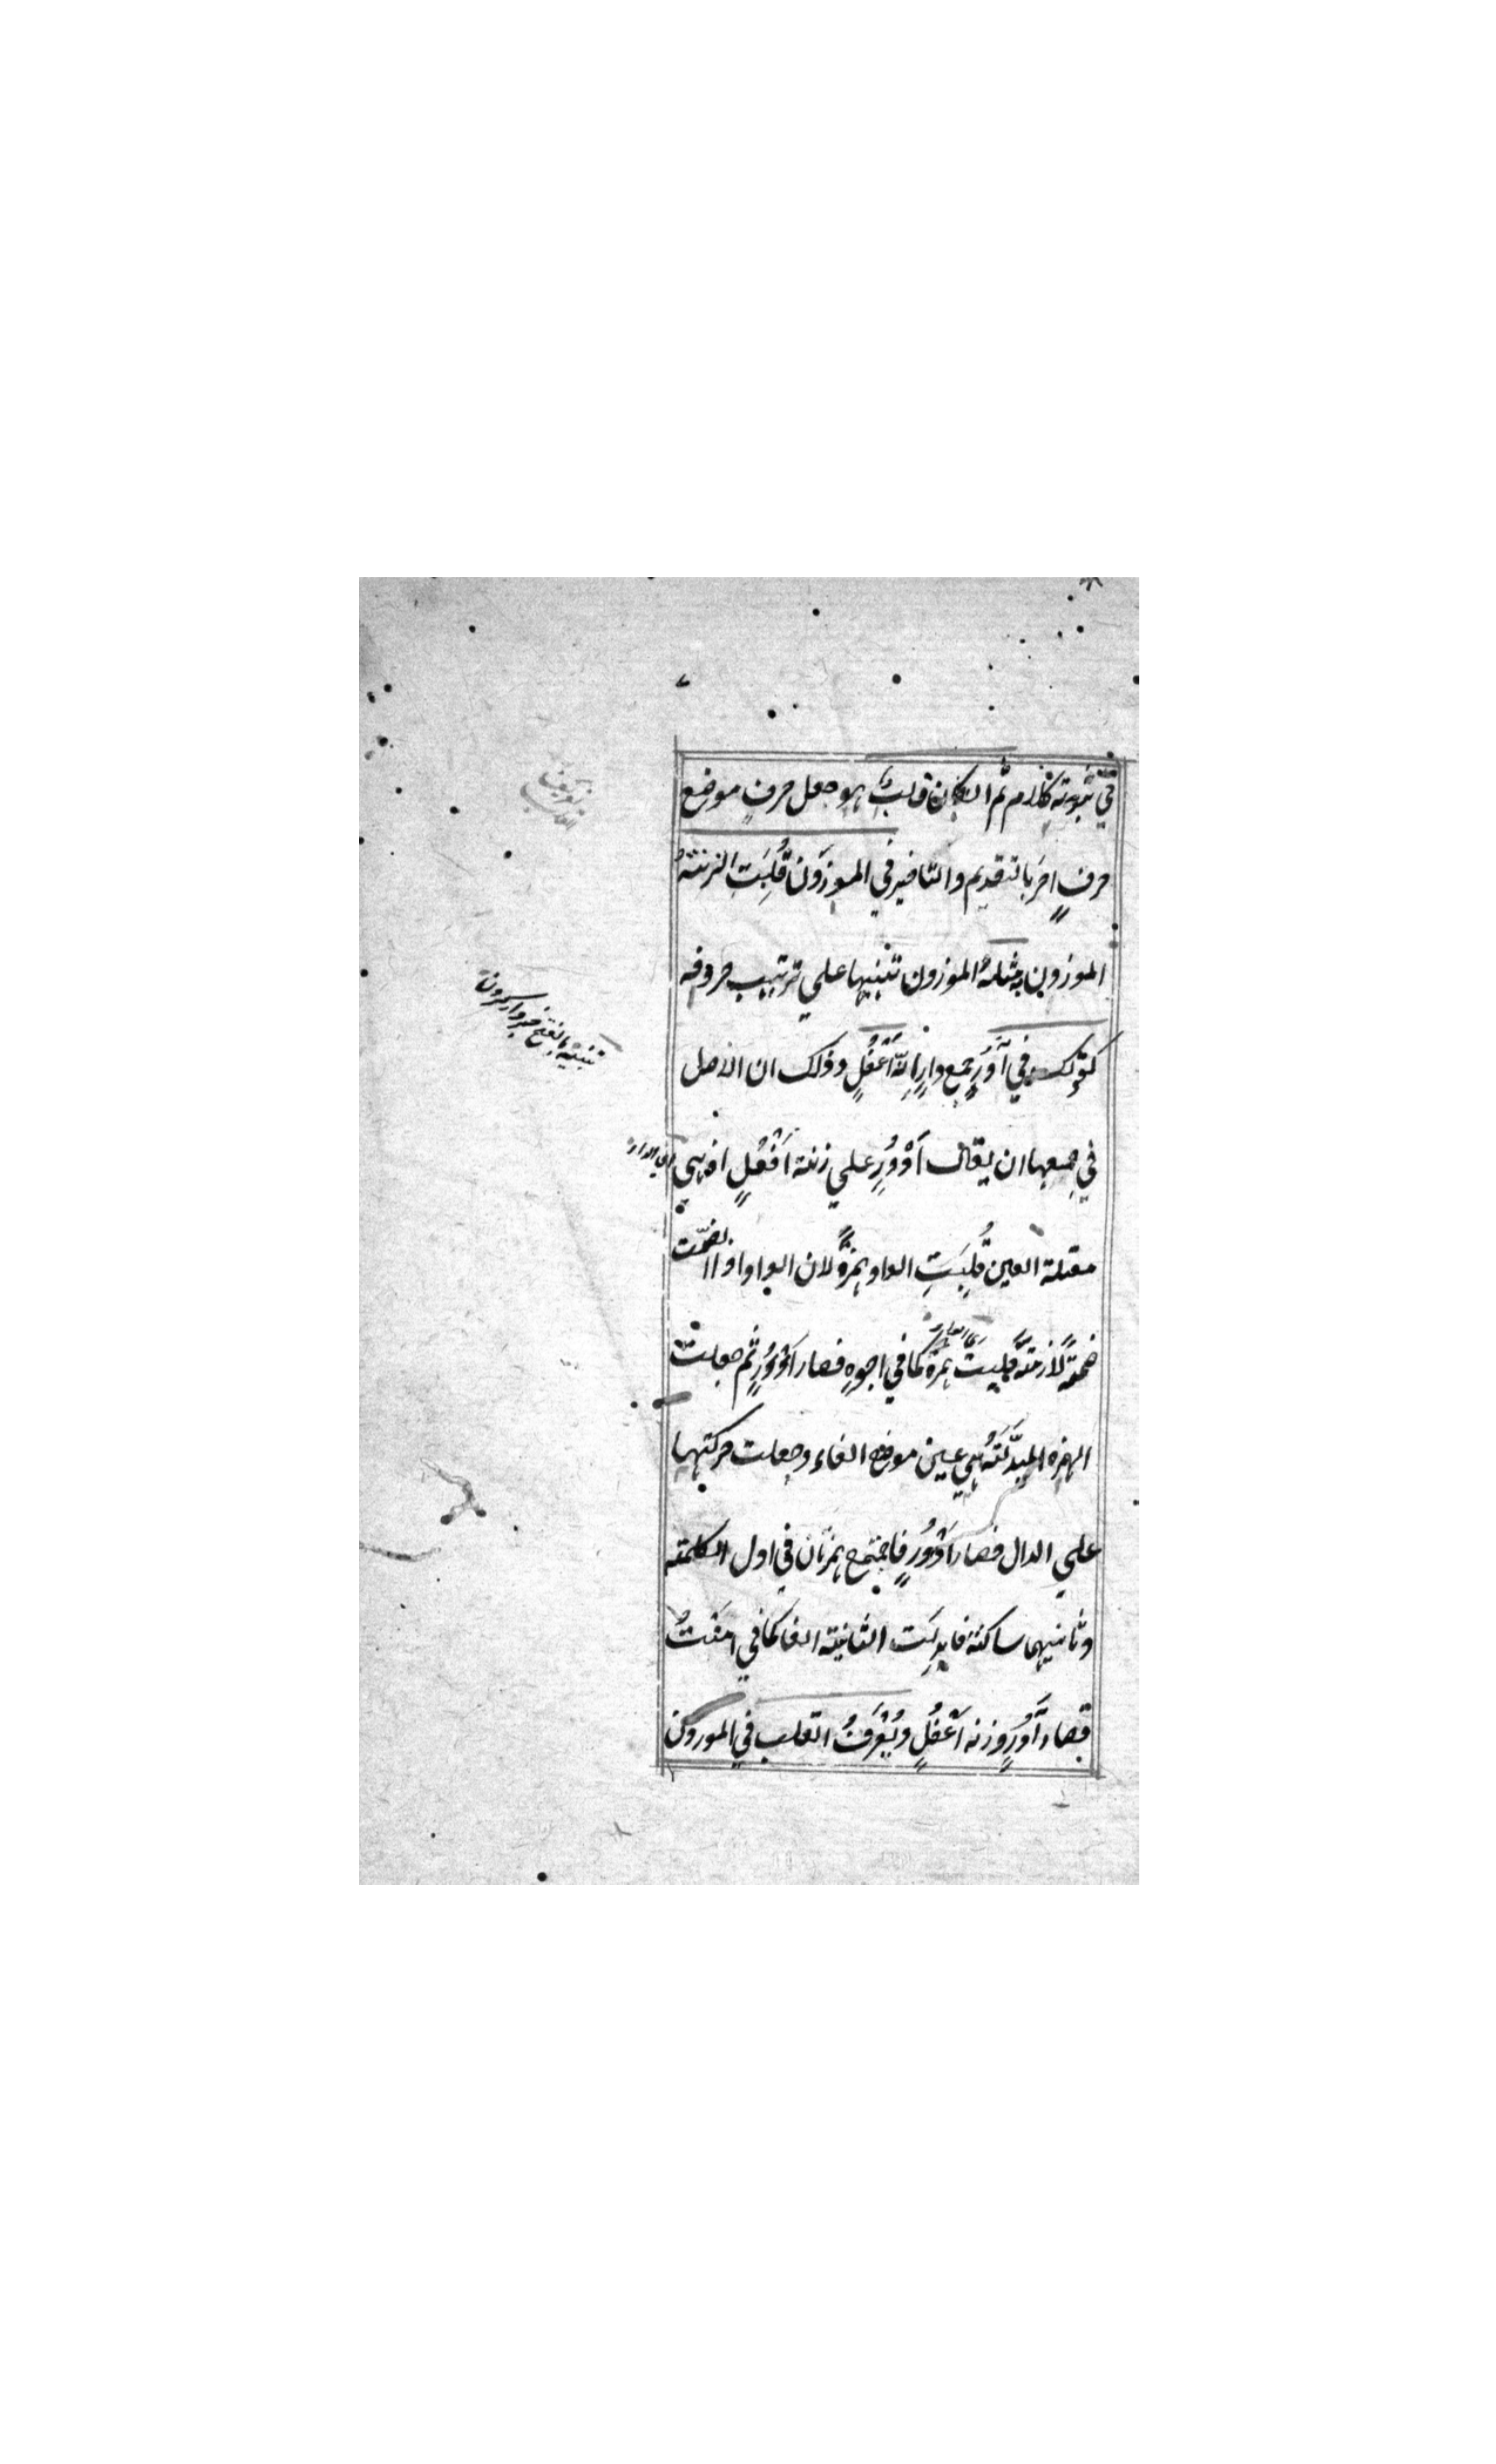 في ثبوته كلام ثم ان كان قلبٌ هو جعل حرفٍ موضع
تعريف القلب
حرفٍ اخر بالتقديم والتاخير في الموزون قُلِبَتِ الزنةُ
الموزون مثله الموزون تنبيها على ترتيب حروفه
تنبيه بالفتح خبردار كردن
كقولك في آدُرٍ جمع دارٍ اَعْفُلٍ وذلك ان الاصل
في جمعها ان يقال اَدْوُرٍ علي زنة اَفْعُلٍ اذ هي
اي الدار
معتلة العين قُلِبَتِ الواو همزةً لان الواو اذا انضمّت
ضمةً لازمةً قلبت همزة كما في اجوهٍ فصار اَدْؤُرٍ ثم جعلت
الهمزه المبدّلَةُ هي عين موضع الفاء وجعلت حركتها
علي الدال فصار اَءْدُرٍ فاجتمع همزتان في اول الكلمة
وثانيهما ساكنة فابدلَت الثانية الفا كما في امَنْتُ
فصار آدُرٍ وزنه اَعْفُلٍ ويُعْرَفُ القلب في الموزون